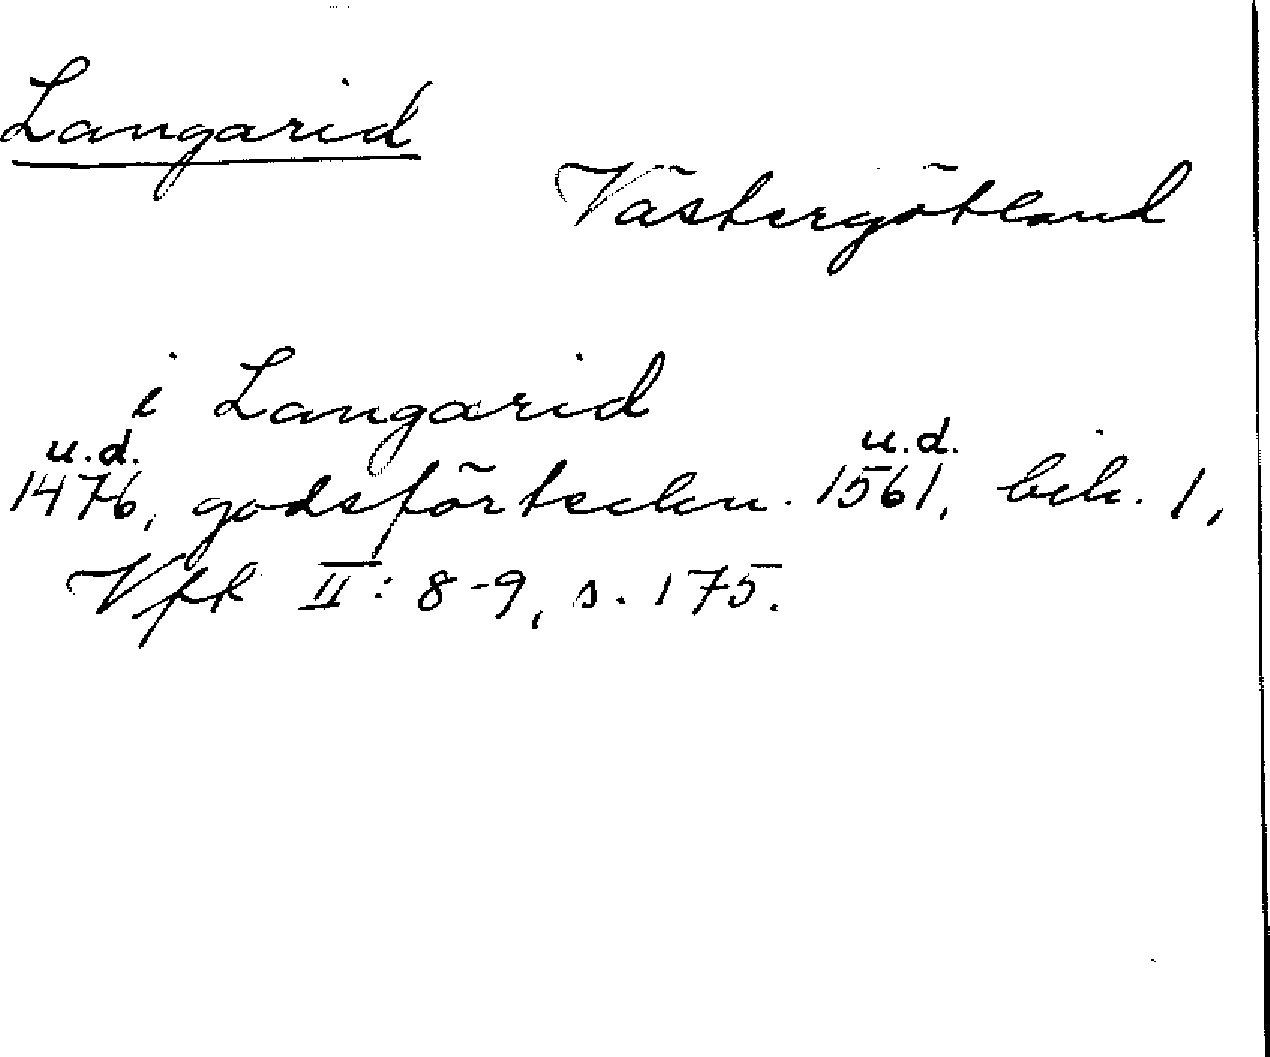 Langarid
Västergötland
i Langarid
u.d. u.d.
1476, godsförteckn. 1561, bih. 1,
Vfft II: 8-9, s. 175.